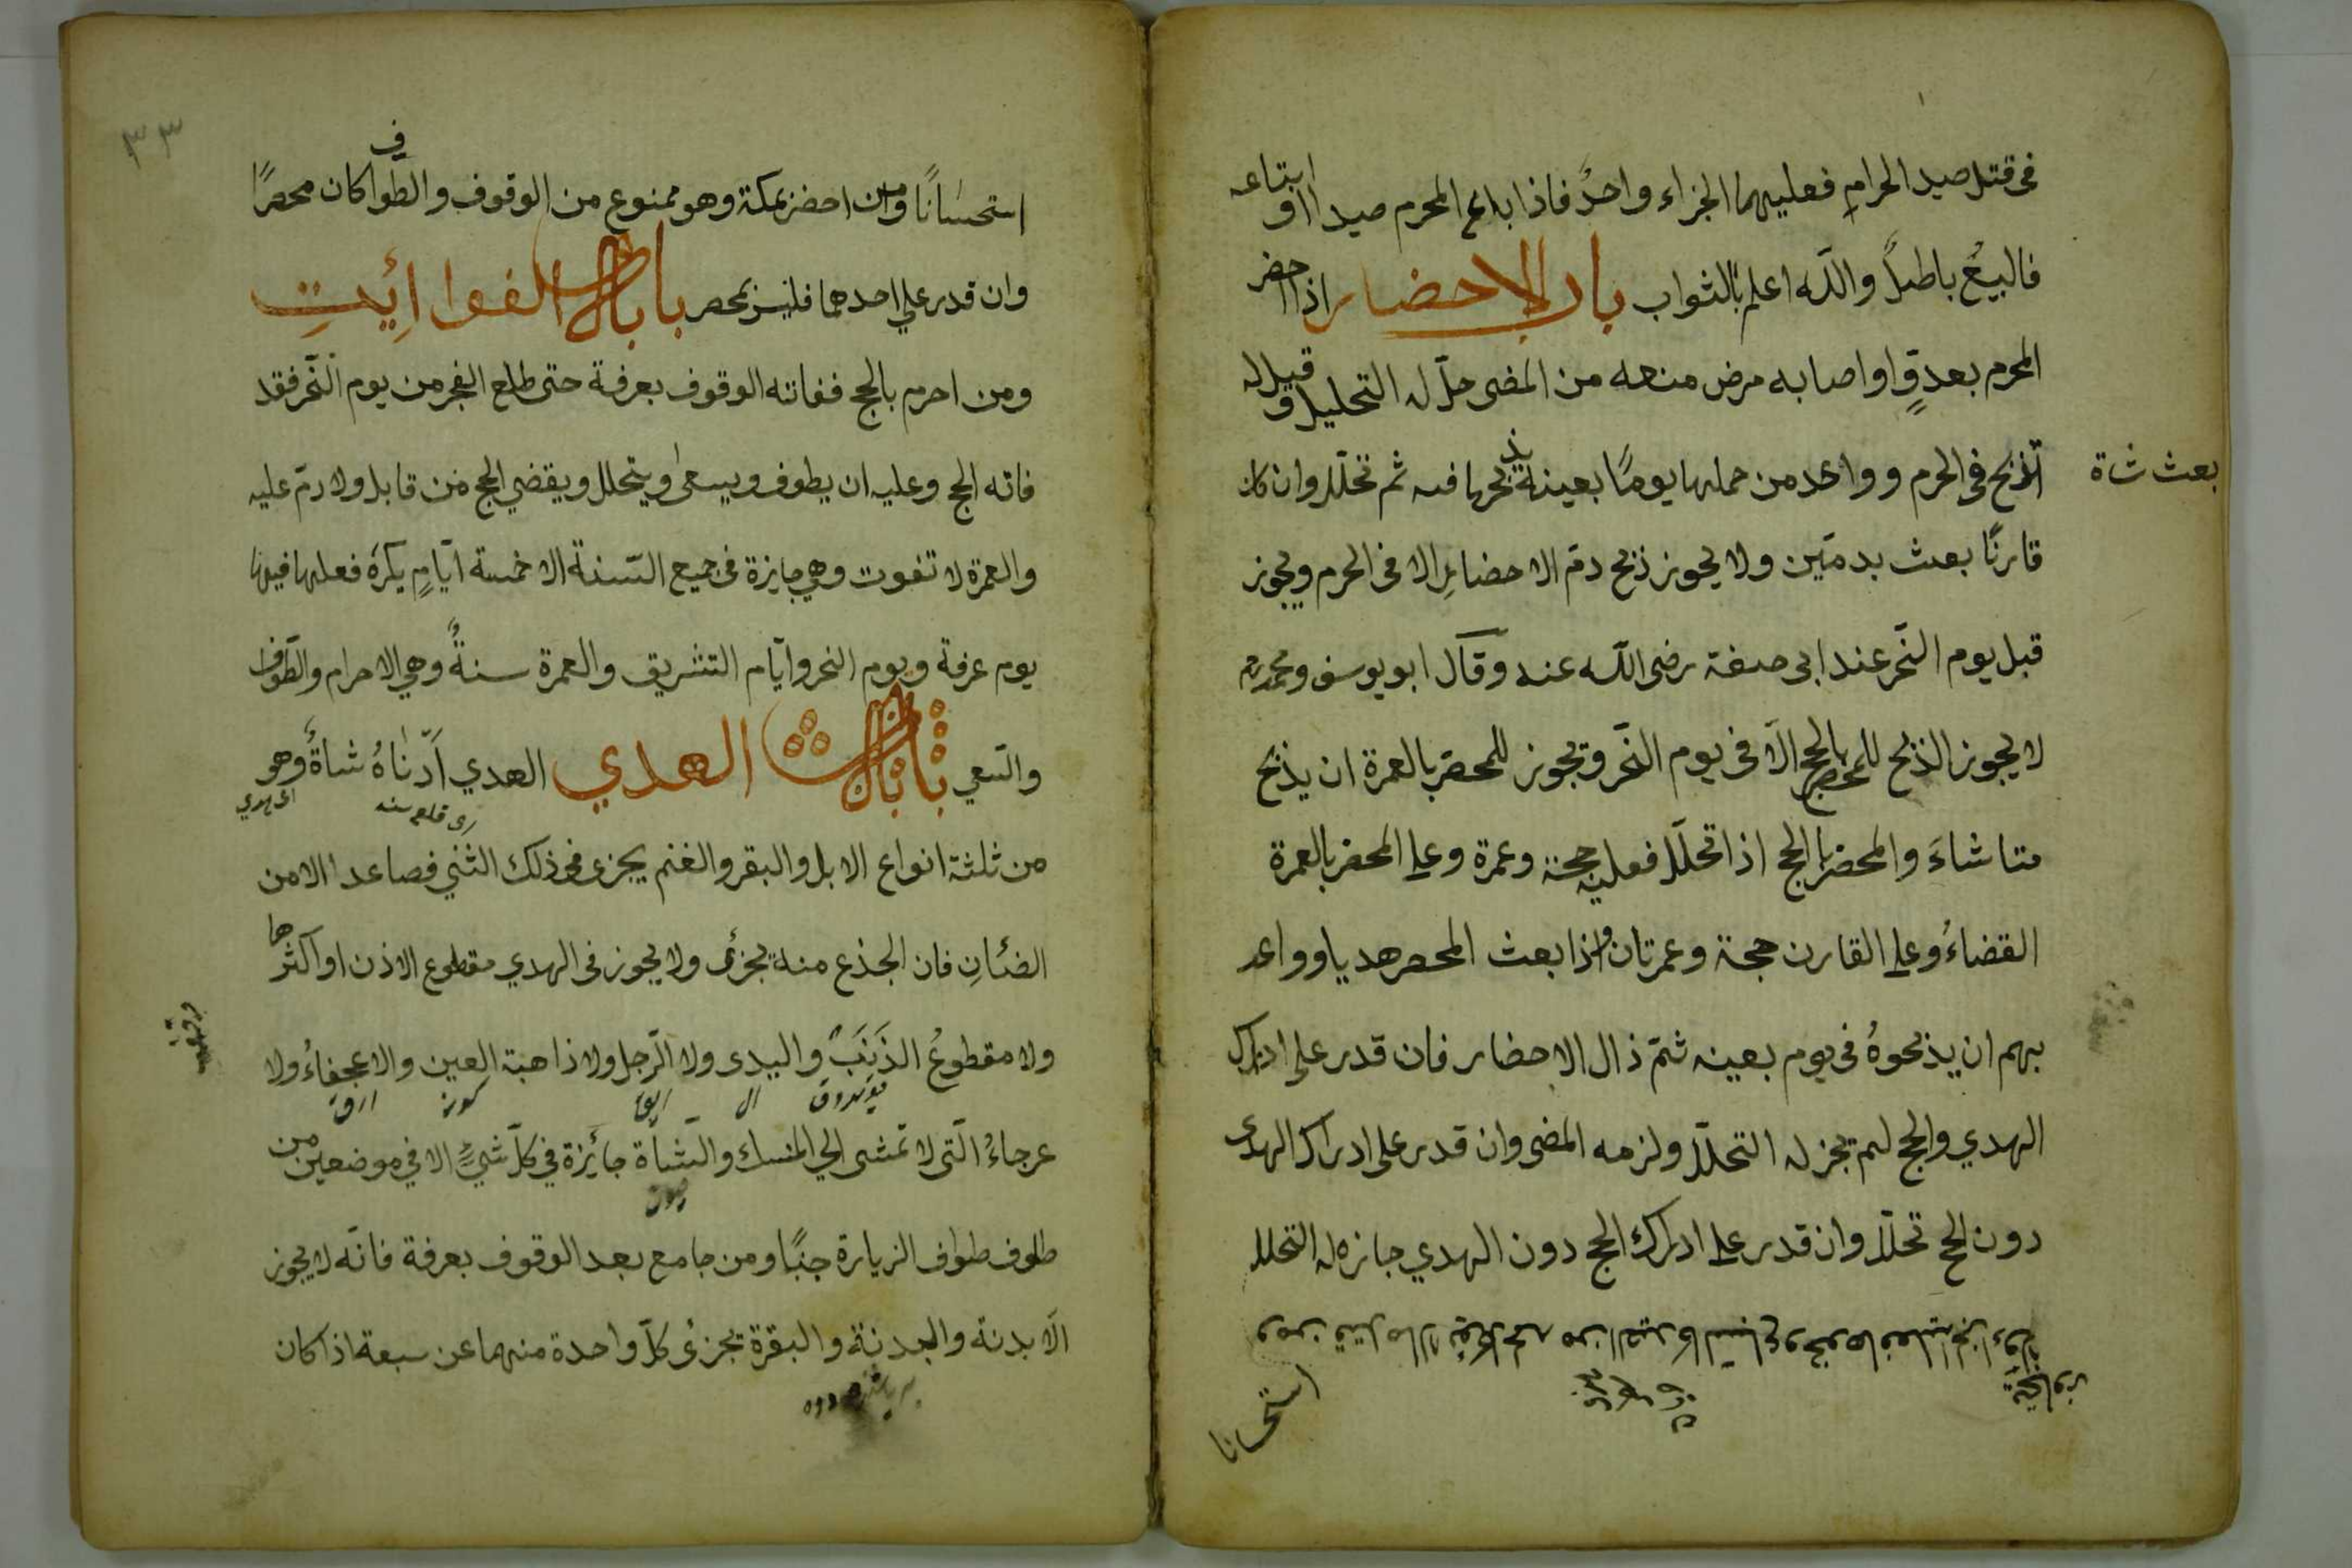 فى قتل صيد الحرامِ فعليهما الجزاء واحدٌ فاذا باع المحرم صيدا او ابتاعه
فالبيعُ باطلٌ والله اعلم بالثواب باب الاحضار اذا احضر
المحرم بعدوٍّ او اصابه مرض منعه من المضى حلّ له التحليل و قيل له
بعث شاة
تذبح فى الحرم وواعد من حملها يومًا بعينه فيه ثم تحلّل وان كان
قارنًا بعث بدمّين ولا يجوز ذبح دمّ الاحضارِ الا فى الحرم ويجوز
قبل يوم النّحر عند ابى حنيفة رضى الله عنه وقال ابو يوسف ومحمد
لا يجوز الذبح للمحضر بالحج الّا فى يوم النّحر ويجوز للمحضر بالعمرة ان يذبح
متا شاءَ والمحضر بالحج اذا تحلّل فعليه حجة وعمرة وعلى المحضر بالعمرة
القضاءُ وعلى القارن حجة وعمرتان واذا بعث المحصر هديا وواعد
بهم ان يذبحوهُ فى يوم بعينه ثمّ ذال الاحضار فان قدر على ادراك
الهدي والحج لم يجز له التحلّل ولزمه المضى وان قدر على ادراك الهدى
دون الحج تحلّل وان قدر على ادراك الحج دون الهدي جاز له التحلل
ومن قتل ما لا يؤكل لحمه من الصيد كالسّباع ونحوها فعليه الجزاء ولا
يتجاوز
استحسانا
٣٣
استحسَانًا ومن احضر بمكة وهو ممنوع من الوقوف والطواف كان محصرًا
وان قدر على احدهما فليس بمحصر باب الفوائيتِ
ومن احرم بالحج ففاته الوقوف بعرفة حتى طلع الفجر من يوم النّحر فقد
فاته الحج وعليه ان يطوف ويسعى ويتحلل ويقضي الحج من قابل ولا دمّ عليه
والعمرة لا تفوت وهي جايزة فى جميع السّنة الا خمسة ايّامٍ يكرهُ فعلها فيها
يوم عرفة ويوم النحر وايّام التشريق والعمرة سنةٌ وهي الاحرام والطّواف
والسّعي باب الهدي الهدي اَدّنٰاهُ شاةٌ وهو
من ثلثة انواع الابل والبقر والغنم يجزى فى ذلك الثني فصاعدا الا من
الضئانِ فان الجذع منه يجزئ ولا يجوز فى الهدي مقطوع الاذن او اكثرها
ولا مقطوعُ الذَنَبَ واليدى ولا الرّجل ولا ذاهبة العين والا عجفاءُ ولا
عرجاءُ الّتى لا تمشى الى المنسك والشّاة جائزة في كلّ شئٍ الا في موضعين من
طوف طواف الزيارة جنبًا ومن جامع بعد الوقوف بعرفة فانّه لا يجوز
الّا بدنة والبدنة والبقرة يجزئ كلّ واحدة منهما عن سبعة اذا كان